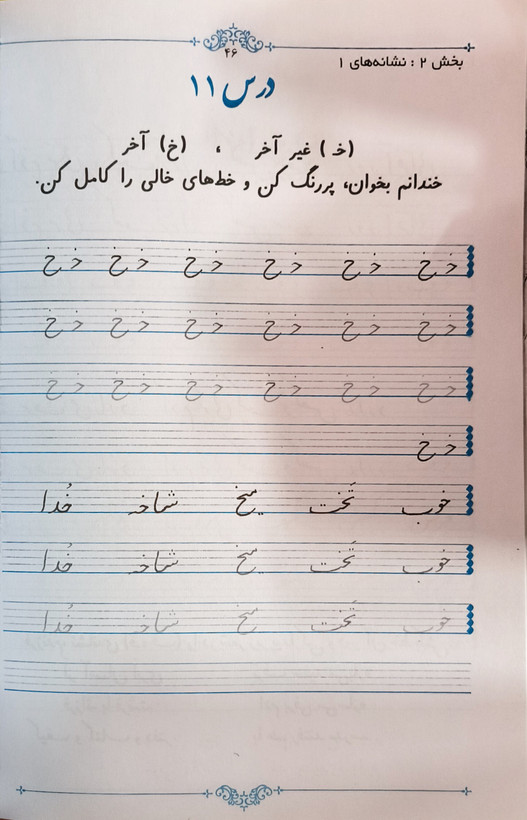 ۴۶
بخش ۲ : نشانه‌های ۱
درس ۱۱
(خـ) غیر آخر ، (خ) آخر
خندانم بخوان، پررنگ کن و خط‌های خالی را کامل کن.
خـ خ خـ خ خـ خ خـ خ خـ خ خـ خ
خـ خ خـ خ خـ خ خـ خ خـ خ خـ خ
خـ خ خـ خ خـ خ خـ خ خـ خ خـ خ
خـ خ
خوب تَخت سیخ شاخه خُدا
خوب تَخت سیخ شاخه خُدا
خوب تَخت سیخ شاخه خُدا